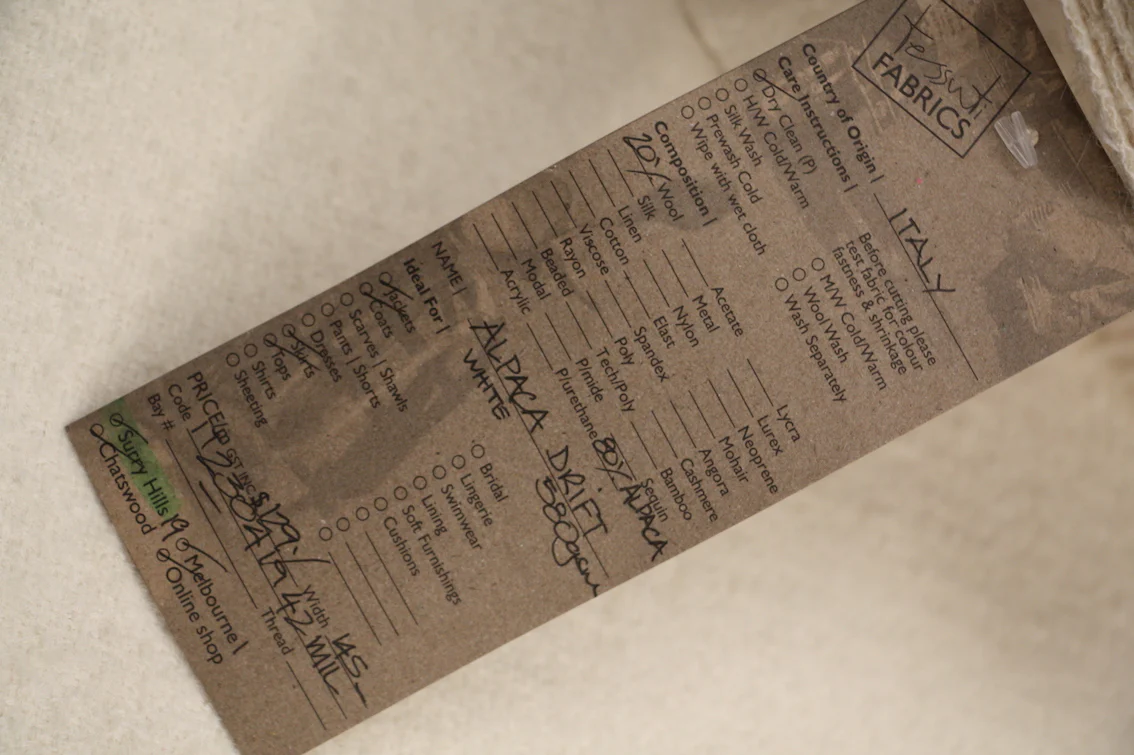 tessuti
FABRICS
Country of Origin | ITALY
Care Instructions |
Dry Clean (P)
H/W Cold/Warm
Silk Wash
Prewash Cold
Wipe with wet cloth
Before cutting please
test fabric for colour
fastness & shrinkage
M/W Cold/Warm
Wool Wash
Wash Separately
Composition |
20% Wool
Silk
Linen
Cotton
Viscose
Rayon
Beaded
Modal
Acrylic
Acetate
Metal
Nylon
Elast
Spandex
Poly
Tech/Poly
P/mide
P/urethane
Lycra
Lurex
Neoprene
Mohair
Angora
Cashmere
Bamboo
Sequin
80% ALPACA
NAME | ALPACA DRIFT
WHITE 580gcm
Ideal For |
Jackets
Coats
Scarves | Shawls
Pants | Shorts
Dresses
Skirts
Tops
Shirts
Sheeting
Bridal
Lingerie
Swimwear
Lining
Soft Furnishings
Cushions
PRICE GST INC $129.- Width 145
Code
Bay #
Thread
Surry Hills 19
Melbourne |
Chatswood
Online shop